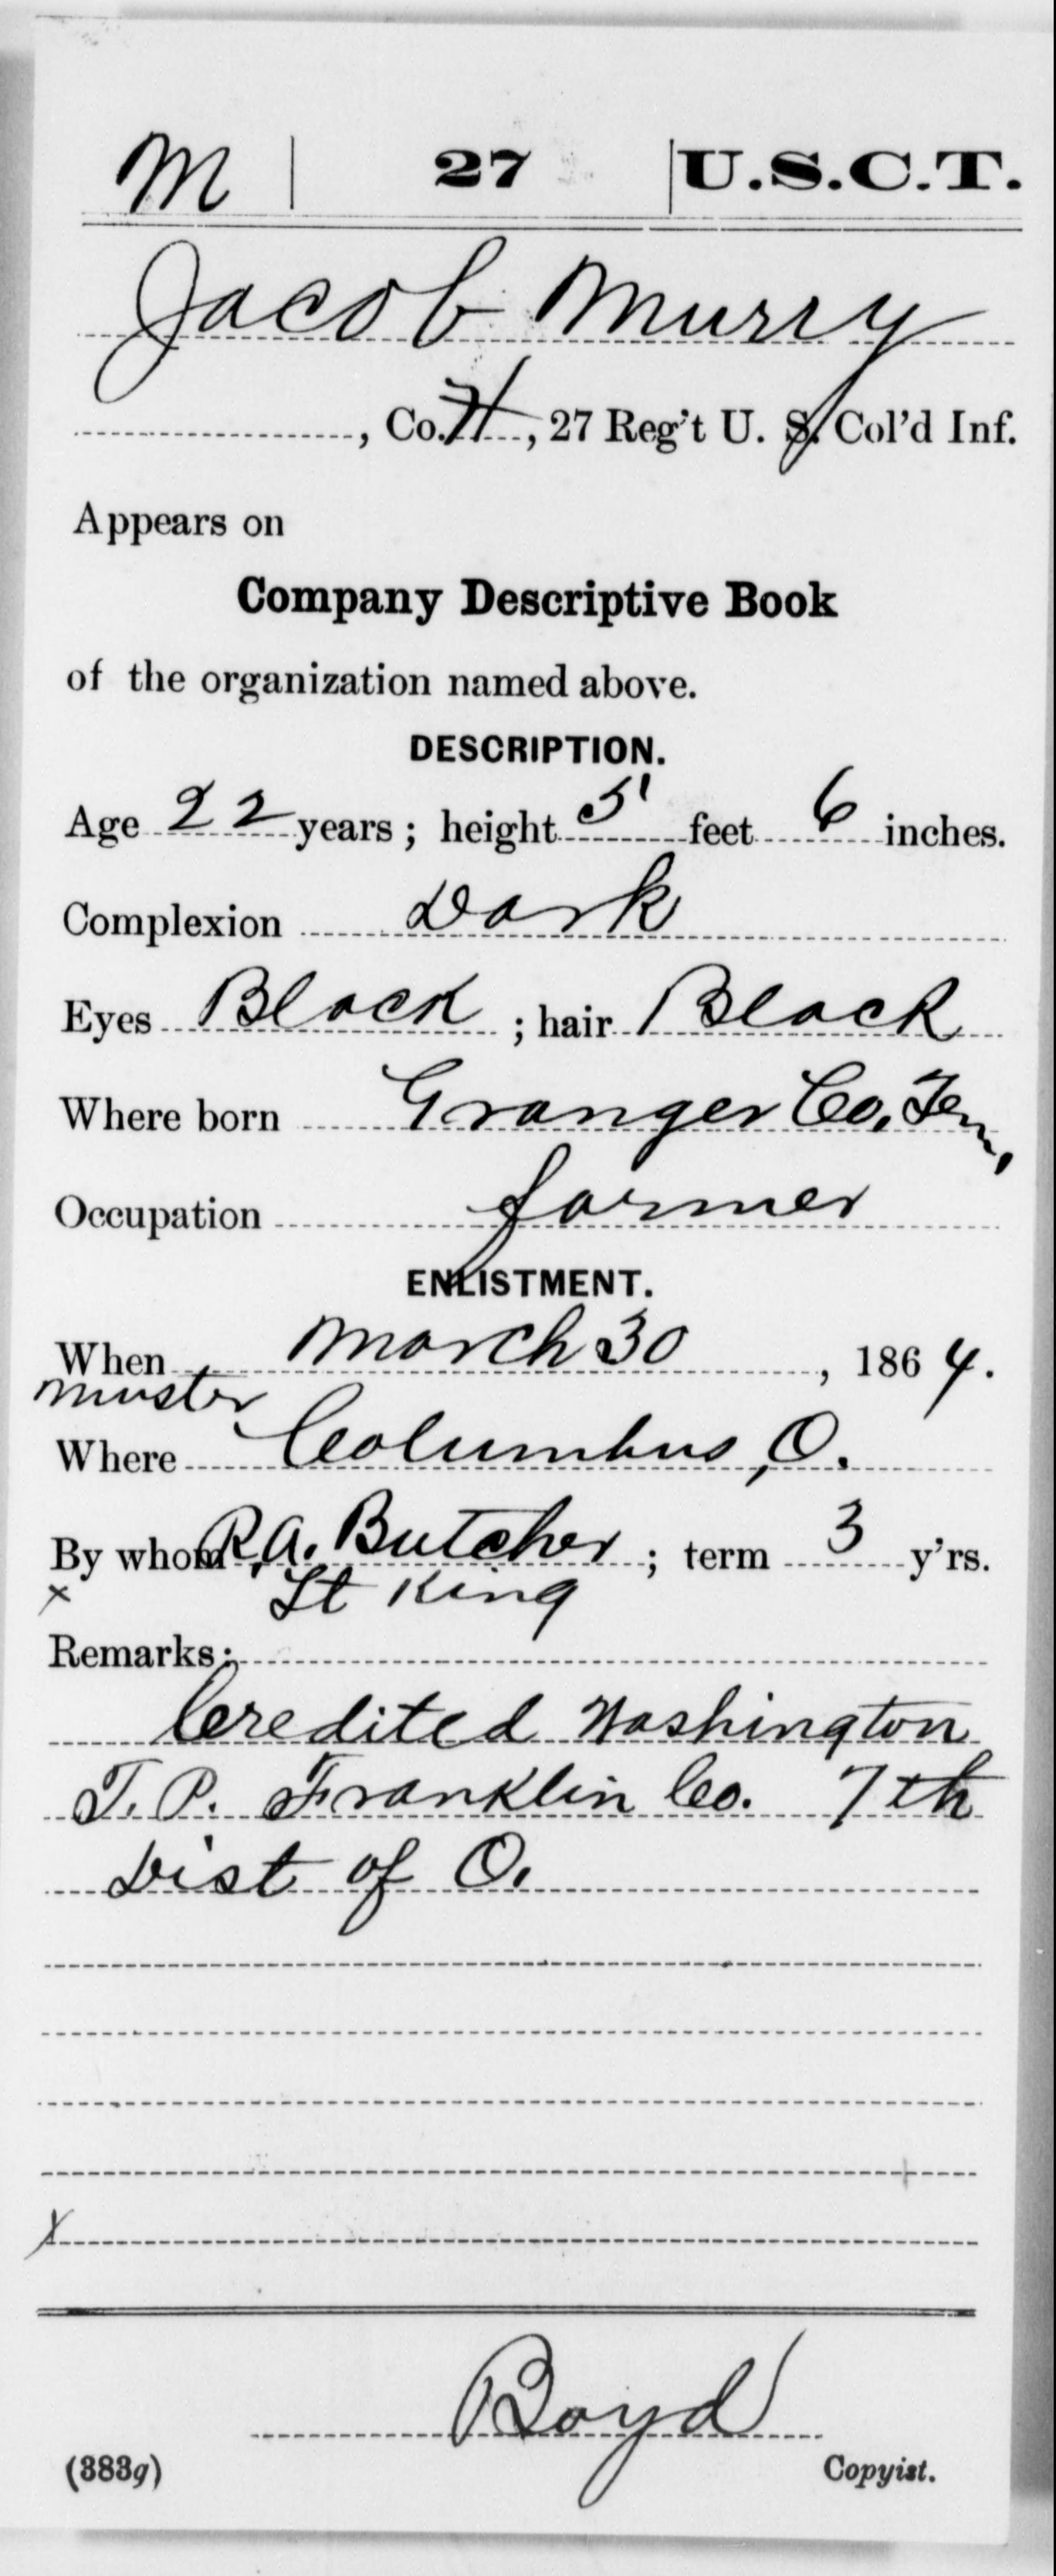 M | 27 | U.S.C.T.
Jacob Murry
, Co. H, 27 Reg't U. S. Col'd Inf.
Appears on
Company Descriptive Book
of the organization named above.
DESCRIPTION.
Age 22 years; height 5 feet 6 inches.
Complexion Dark
Eyes Black; hair Black
Where born Granger Co, Ten,
Occupation farmer
ENLISTMENT.
When March 30, 1864.
muster
Where Columbus, O.
By whom R.A. Butcher; term 3 y'rs.
x Lt King
Remarks:
Credited Washington
T.P. Franklin Co. 7th
Dist of O.
x
Boyd
(383g) Copyist.